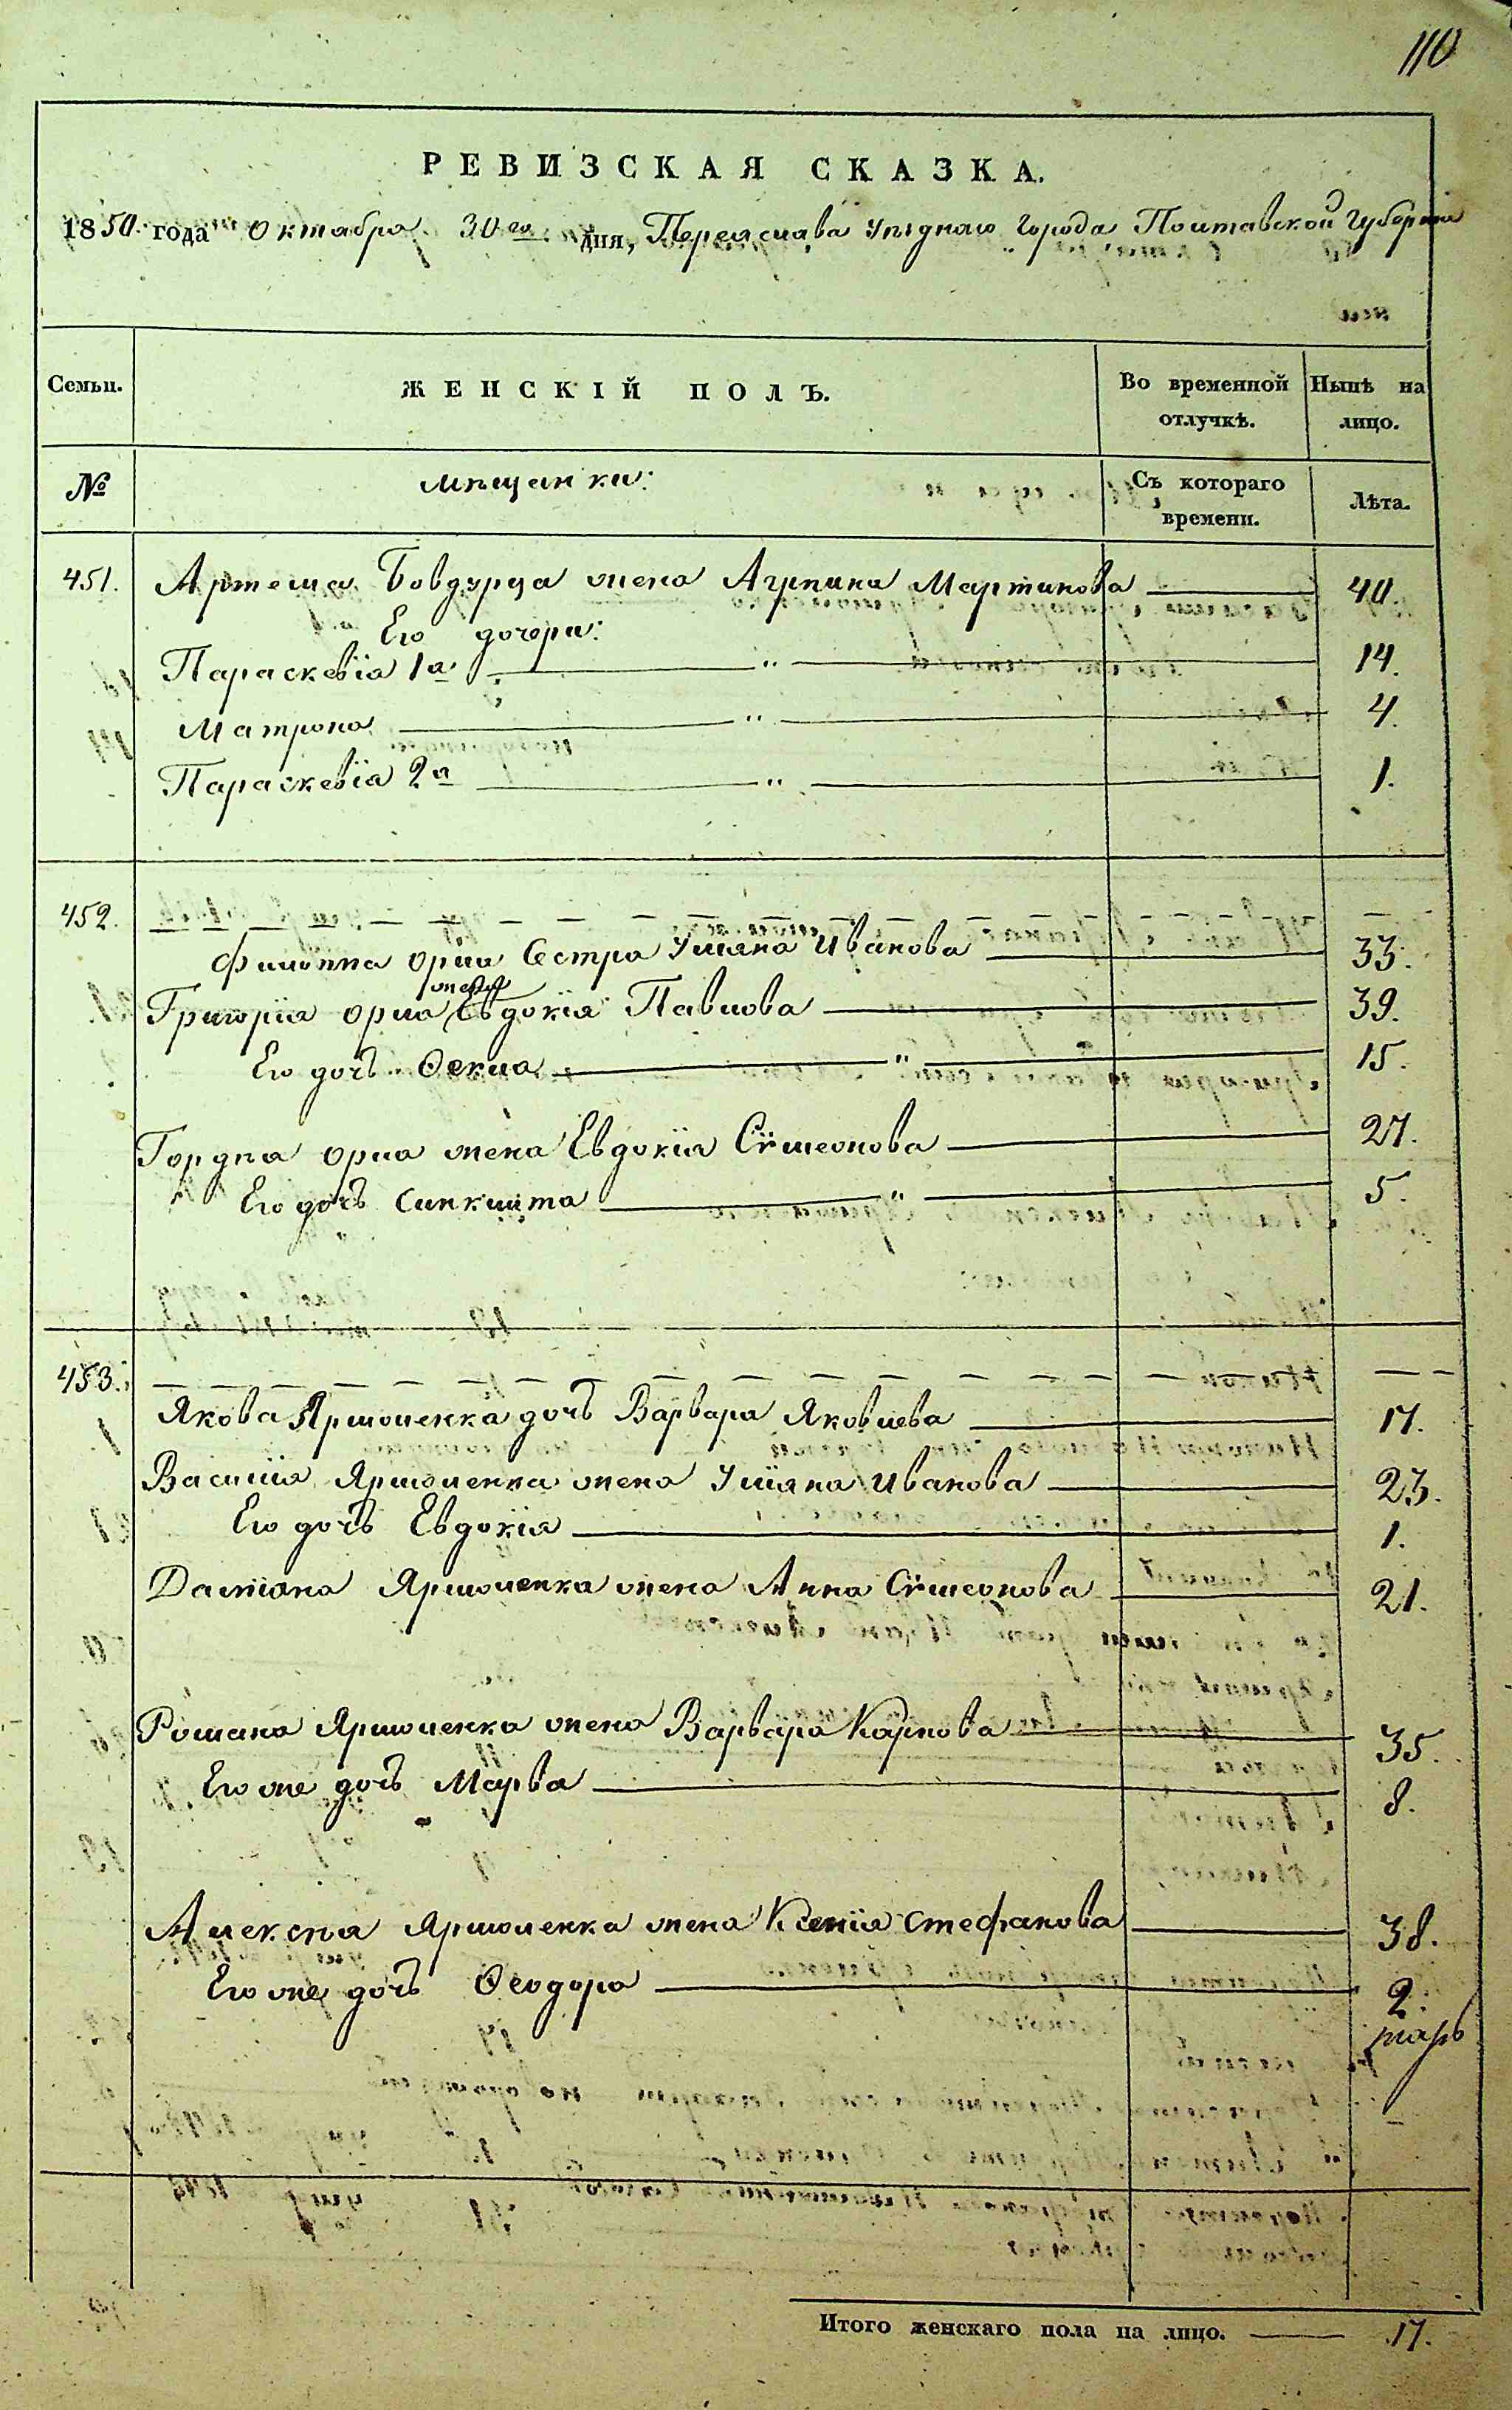 110
РЕВИЗСКАЯ СКАЗКА.
1850 года Октября 30го дня, Переяслава уѣзднаго города Полтавской Губерніи
Семьи. ЖЕНСКІЙ ПОЛЪ. Во временной отлучкѣ. Нынѣ на лицо.
№ мѣщанки: Съ котораго времени. Лѣта.
451. Артема Бовдурца жена Агрпина Мартинова 40.
Его дочери:
Параскевія 1а " 14.
Матрона " 4.
Параскевія 2я " 1.
452.
Филиппа Орла Сестра Уліяна Иванова 33.
Григорія Орла жена Евдокія Павлова 39.
Его дочь Ѳекла " 15.
Гордѣя Орла жена Евдокія Сѵмеонова 27.
Его дочь Синклита " 5.
453.
Якова Ярмоленка дочь Варвара Яковлева 17.
Василія Ярмоленка жена Уліяна Иванова 23.
Его дочь Евдокія 1.
Даміана Ярмоленка жена Анна Сѵмеонова 21.
Романа Ярмоленка жена Варвара Карпова 35.
Его же дочь Марѳа 8.
Алексѣя Ярмоленка жена Ксенія Стефанова 38.
Его же дочь Ѳеодора 2.
Итого женскаго пола на лицо. 17.